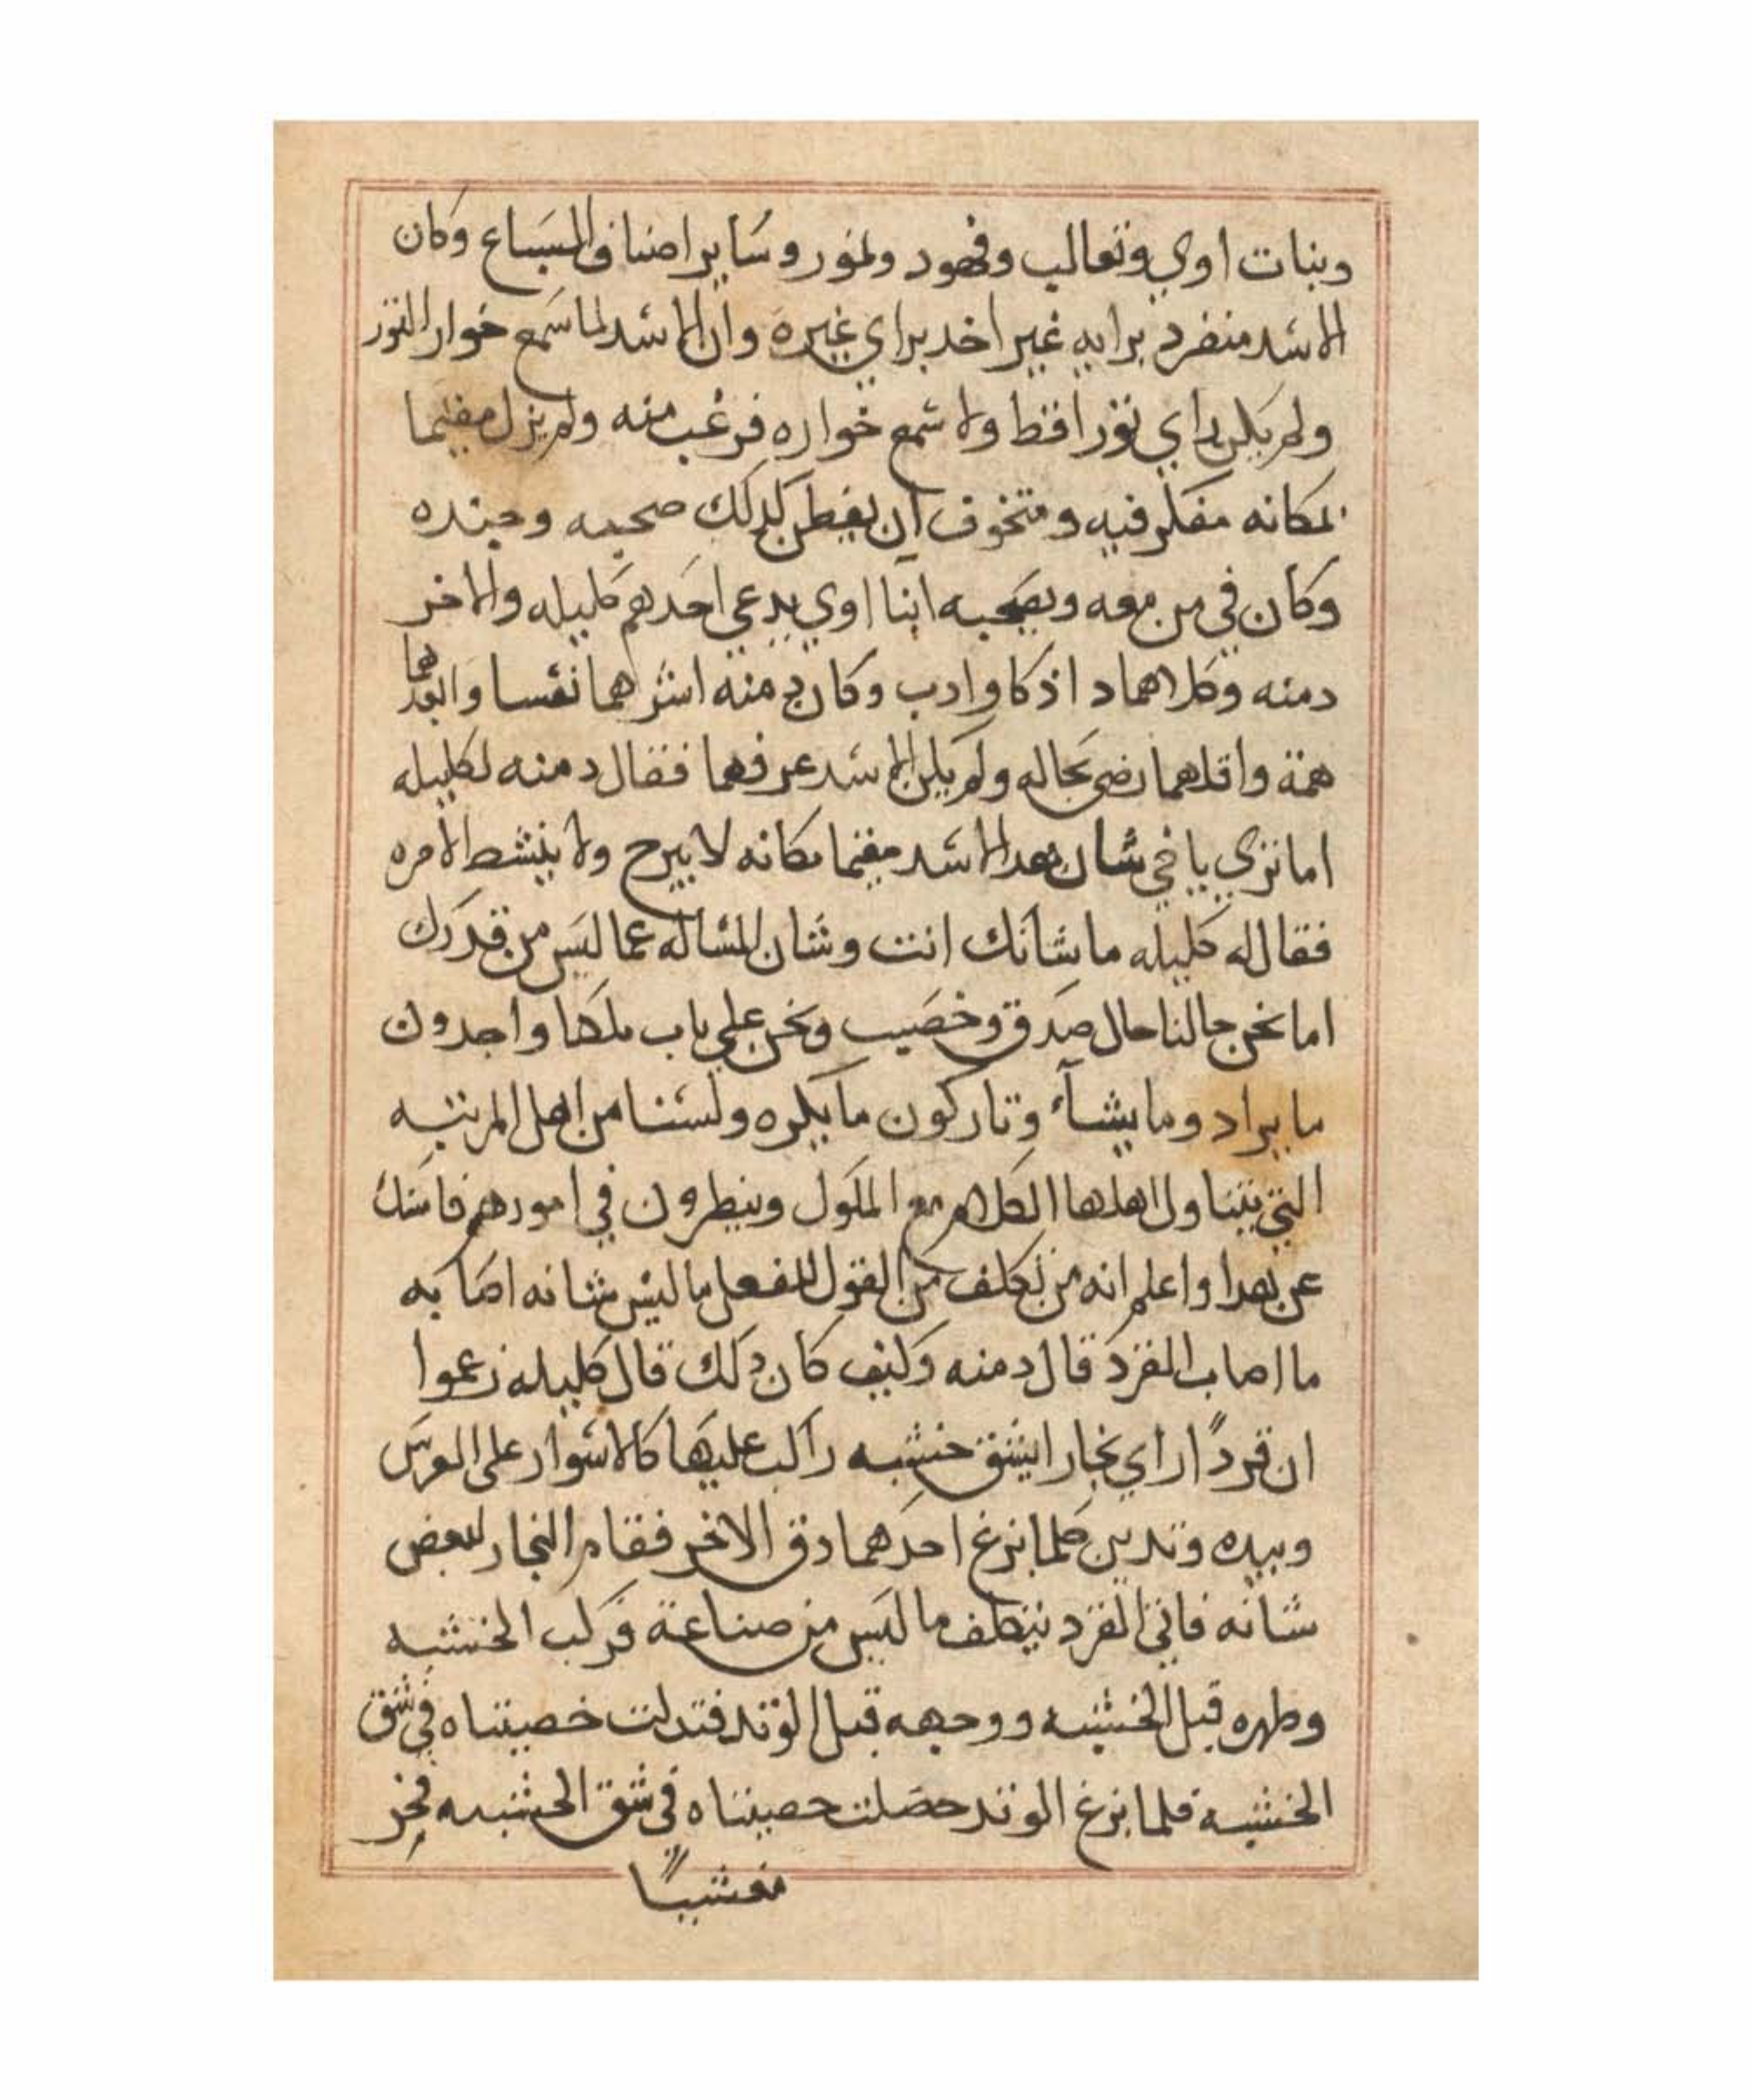 وبنات اوي وتعالب وفهود ونمور وسَاير اصناف السَباع وكان
الاسَد منفرد برايه غير اخد براي غيره وان الاسَد لما سَمع خوار الثور
ولم يكن راي ثورا قط ولا سَمع خواره فرعب منه ولم يزل مقيما
بمكانه مفكر فيه ومتخوف ان يفطن لدلك صحبه وجنده
وكان في من معه وبصَحبه ابنا اوي يدعي احَدهم كليله والاخر
دمنه وكلاهما داذكا وادب وكان دمنه اشرهما نفسا وابعدهما
همة واقلهما رضي بحاله ولم يكن الاسَد عرفهما فقال دمنه لكليله
اما تري ياخي شان هدا الاسَد مقيما مكانه لا يبرح ولا ينشط لامره
فقال له كليله ما شانك انت وشان المسَاله عما ليسَ من قدرك
اما نحن حالنا حال صدق وخصَيب ونحن علي باب ملكا واجدون
ما يراد وما يشآء وتاركون ما يكره ولسَنا من اهل المرتبه
التي يتناول اهلها الكلام مع الملوك وينطرون في امورهم فامسَك
عن هدا واعلم انه من تكلف من القول الفعل ما ليسَ شانه اصَابه
ما اصاب القرد قال دمنه وكيف كان دلك قال كليله زعموا
ان قردًا راي نجارا يشق خشبه راكب عليها كالاسَوار علي الفرسَ
وبيده وتدين كلما نزع احدهما دق الاخر فقام النجار لبعض
شانه فاتي القرد يتكلف ما ليسَ من صناعة فركب الخشبه
وطهره قبل الخشبه ووجهه قبل الوتد فتدلت خصيتاه في شق
الخشبه فلما نزع الوتد حصَلت خصيتاه في شق الخشبه فخر
مغشيًا